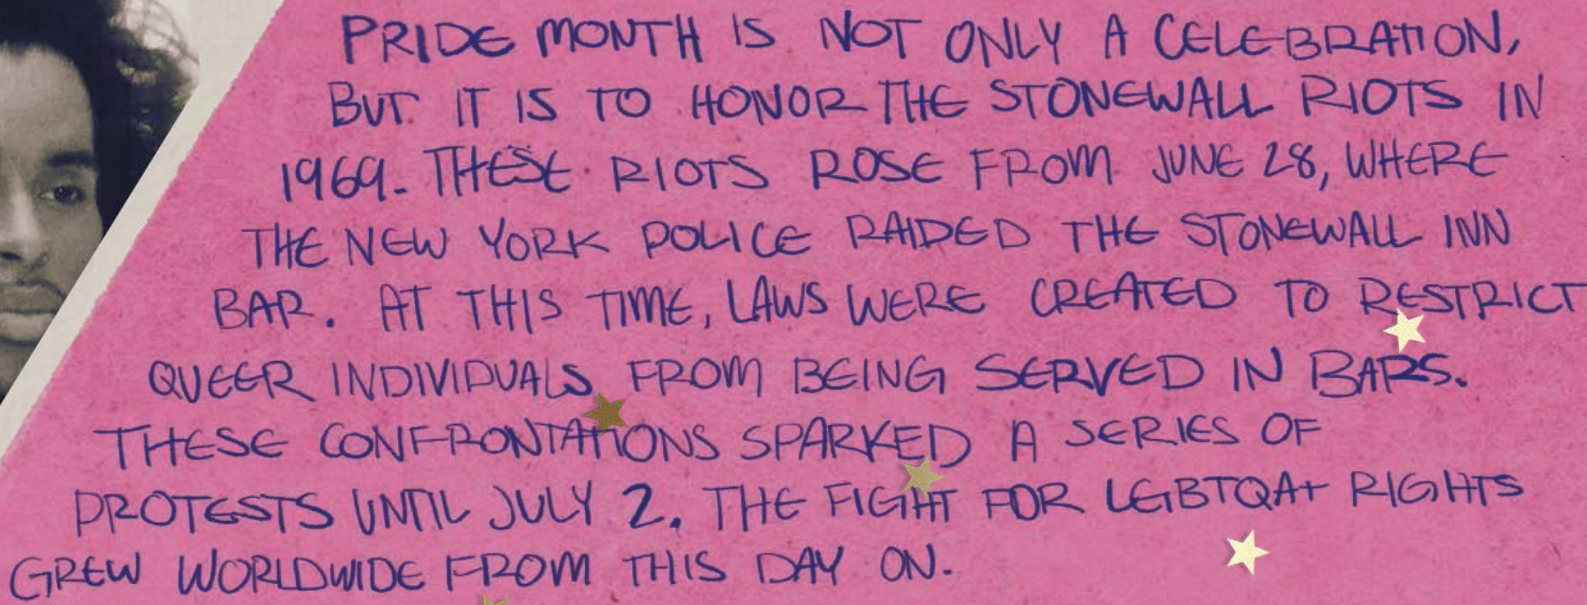 PRIDE MONTH IS NOT ONLY A CELEBRATION,
BUT IT IS TO HONOR THE STONEWALL RIOTS IN
1969. THESE RIOTS ROSE FROM JUNE 28, WHERE
THE NEW YORK POLICE RAIDED THE STONEWALL INN
BAR. AT THIS TIME, LAWS WERE CREATED TO RESTRICT
QUEER INDIVIDUALS FROM BEING SERVED IN BARS.
THESE CONFRONTATIONS SPARKED A SERIES OF
PROTESTS UNTIL JULY 2. THE FIGHT FOR LGBTQA+ RIGHTS
GREW WORLDWIDE FROM THIS DAY ON.